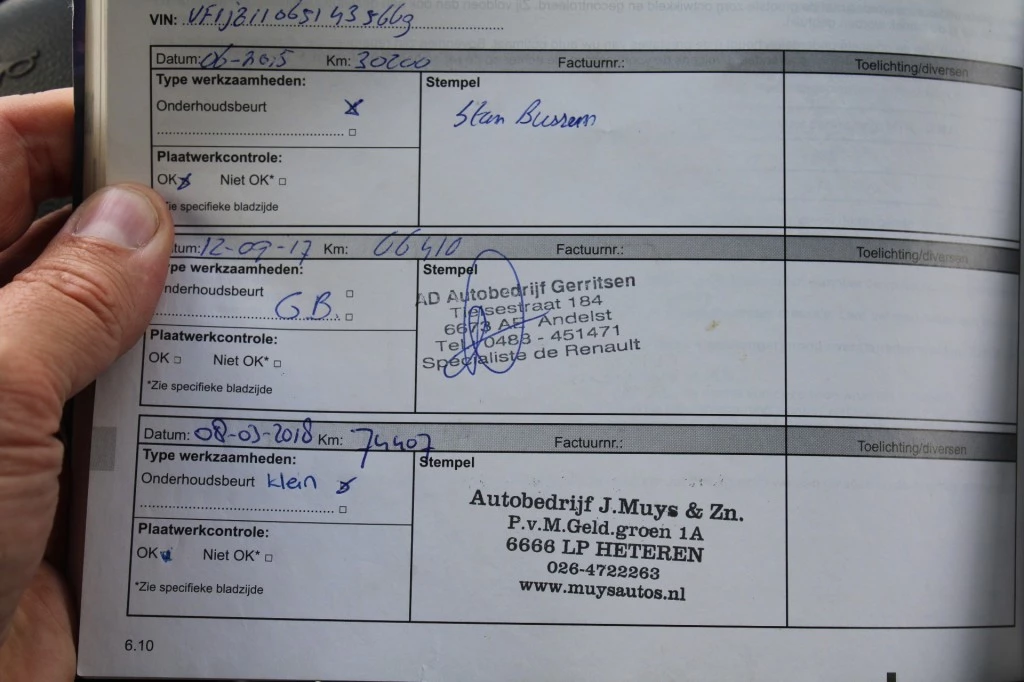 VIN: VF1JZ110651435669
Datum: 06-2015 Km: 30200 Factuurnr.: Toelichting/diversen
Type werkzaamheden: Stempel
Onderhoudsbeurt Stan Bussum
Plaatwerkcontrole:
OK Niet OK*
Zie specifieke bladzijde
tum: 12-09-17 Km: 66410 Factuurnr.: Toelichting/diversen
pe werkzaamheden: Stempel
nderhoudsbeurt
G.B.
AD Autobedrijf Gerritsen
Tielsestraat 184
6673 AE Andelst
Tel. 0488 - 451471
Specialiste de Renault
Plaatwerkcontrole:
OK Niet OK*
*Zie specifieke bladzijde
Datum: 08-03-2018 Km: 74407 Factuurnr.: Toelichting/diversen
Type werkzaamheden: Stempel
Onderhoudsbeurt klein
Autobedrijf J.Muys & Zn.
P.v.M.Geld.groen 1A
6666 LP HETEREN
026-4722263
www.muysautos.nl
Plaatwerkcontrole:
OK Niet OK*
*Zie specifieke bladzijde
6.10